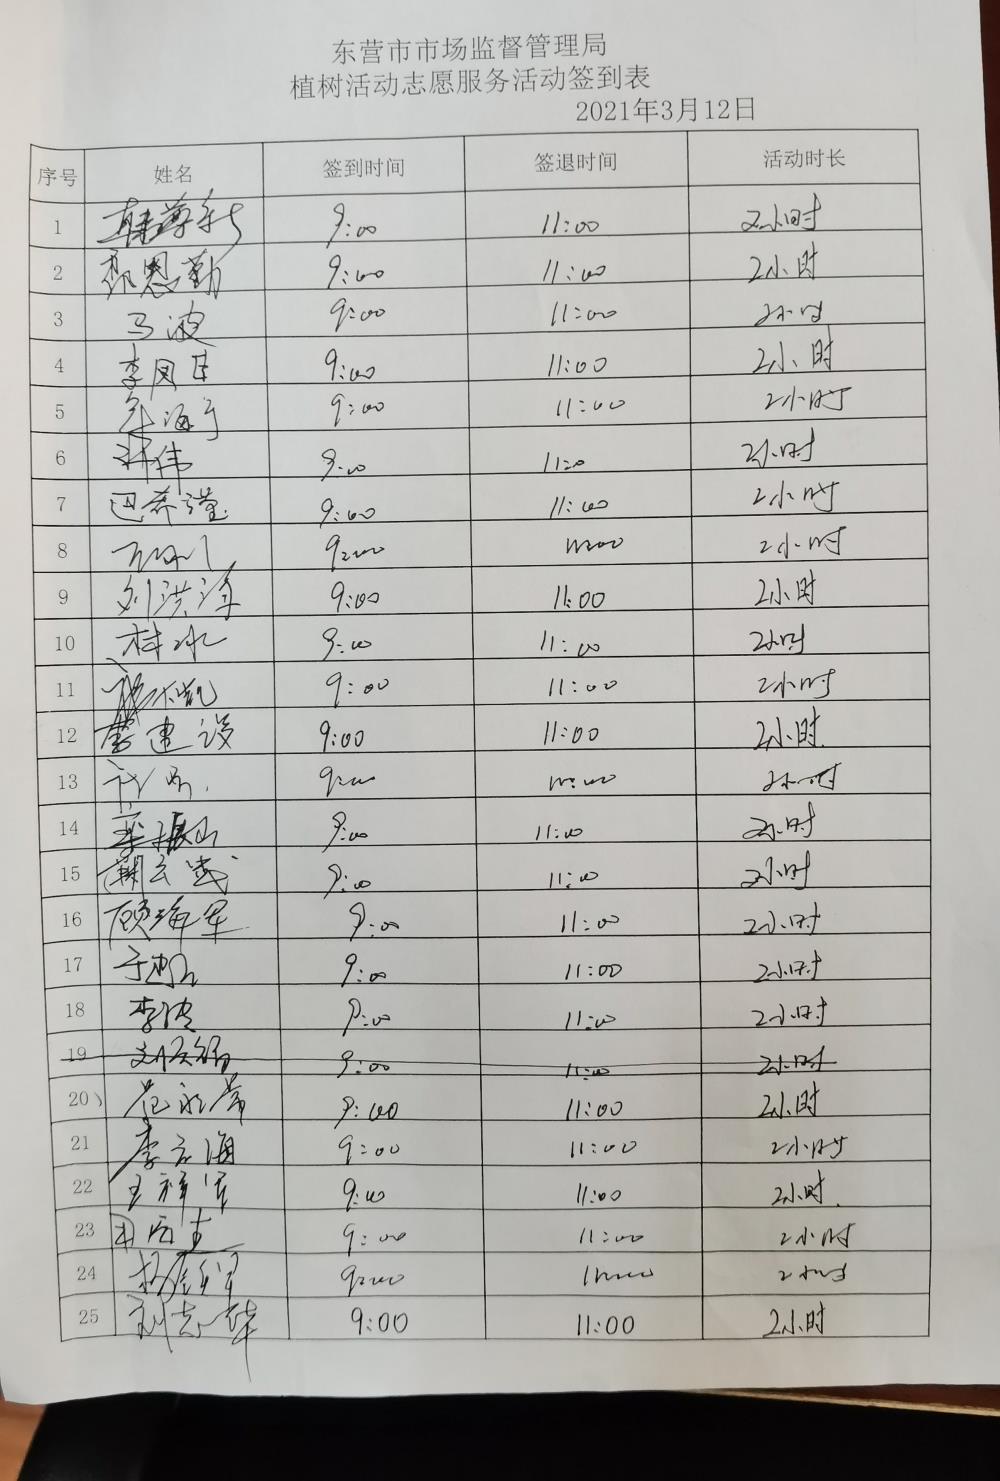 东营市市场监督管理局
植树活动志愿服务活动签到表
2021年3月12日
序号 姓名 签到时间 签退时间 活动时长
1 9:00 11:00 2小时
2 恩勤 9:00 11:00 2小时
3 马波 9:00 11:00 2小时
4 李 9:00 11:00 2小时
5 海 9:00 11:00 2小时
6 伟 9:00 11:00 2小时
7 巴希 9:00 11:00 2小时
8 9:00 11:00 2小时
9 刘洪 9:00 11:00 2小时
10 林冰 9:00 11:00 2小时
11 凯 9:00 11:00 2小时
12 建设 9:00 11:00 2小时
13 许 9:00 11:00 2小时
14 振山 9:00 11:00 2小时
15 云 9:00 11:00 2小时
16 顾海军 9:00 11:00 2小时
17 于 9:00 11:00 2小时
18 李波 9:00 11:00 2小时
19 刘 9:00 11:00 2小时
20 范 9:00 11:00 2小时
21 李云海 9:00 11:00 2小时
22 王祥军 9:00 11:00 2小时
23 9:00 11:00 2小时
24 杨 9:00 11:00 2小时
25 刘志华 9:00 11:00 2小时